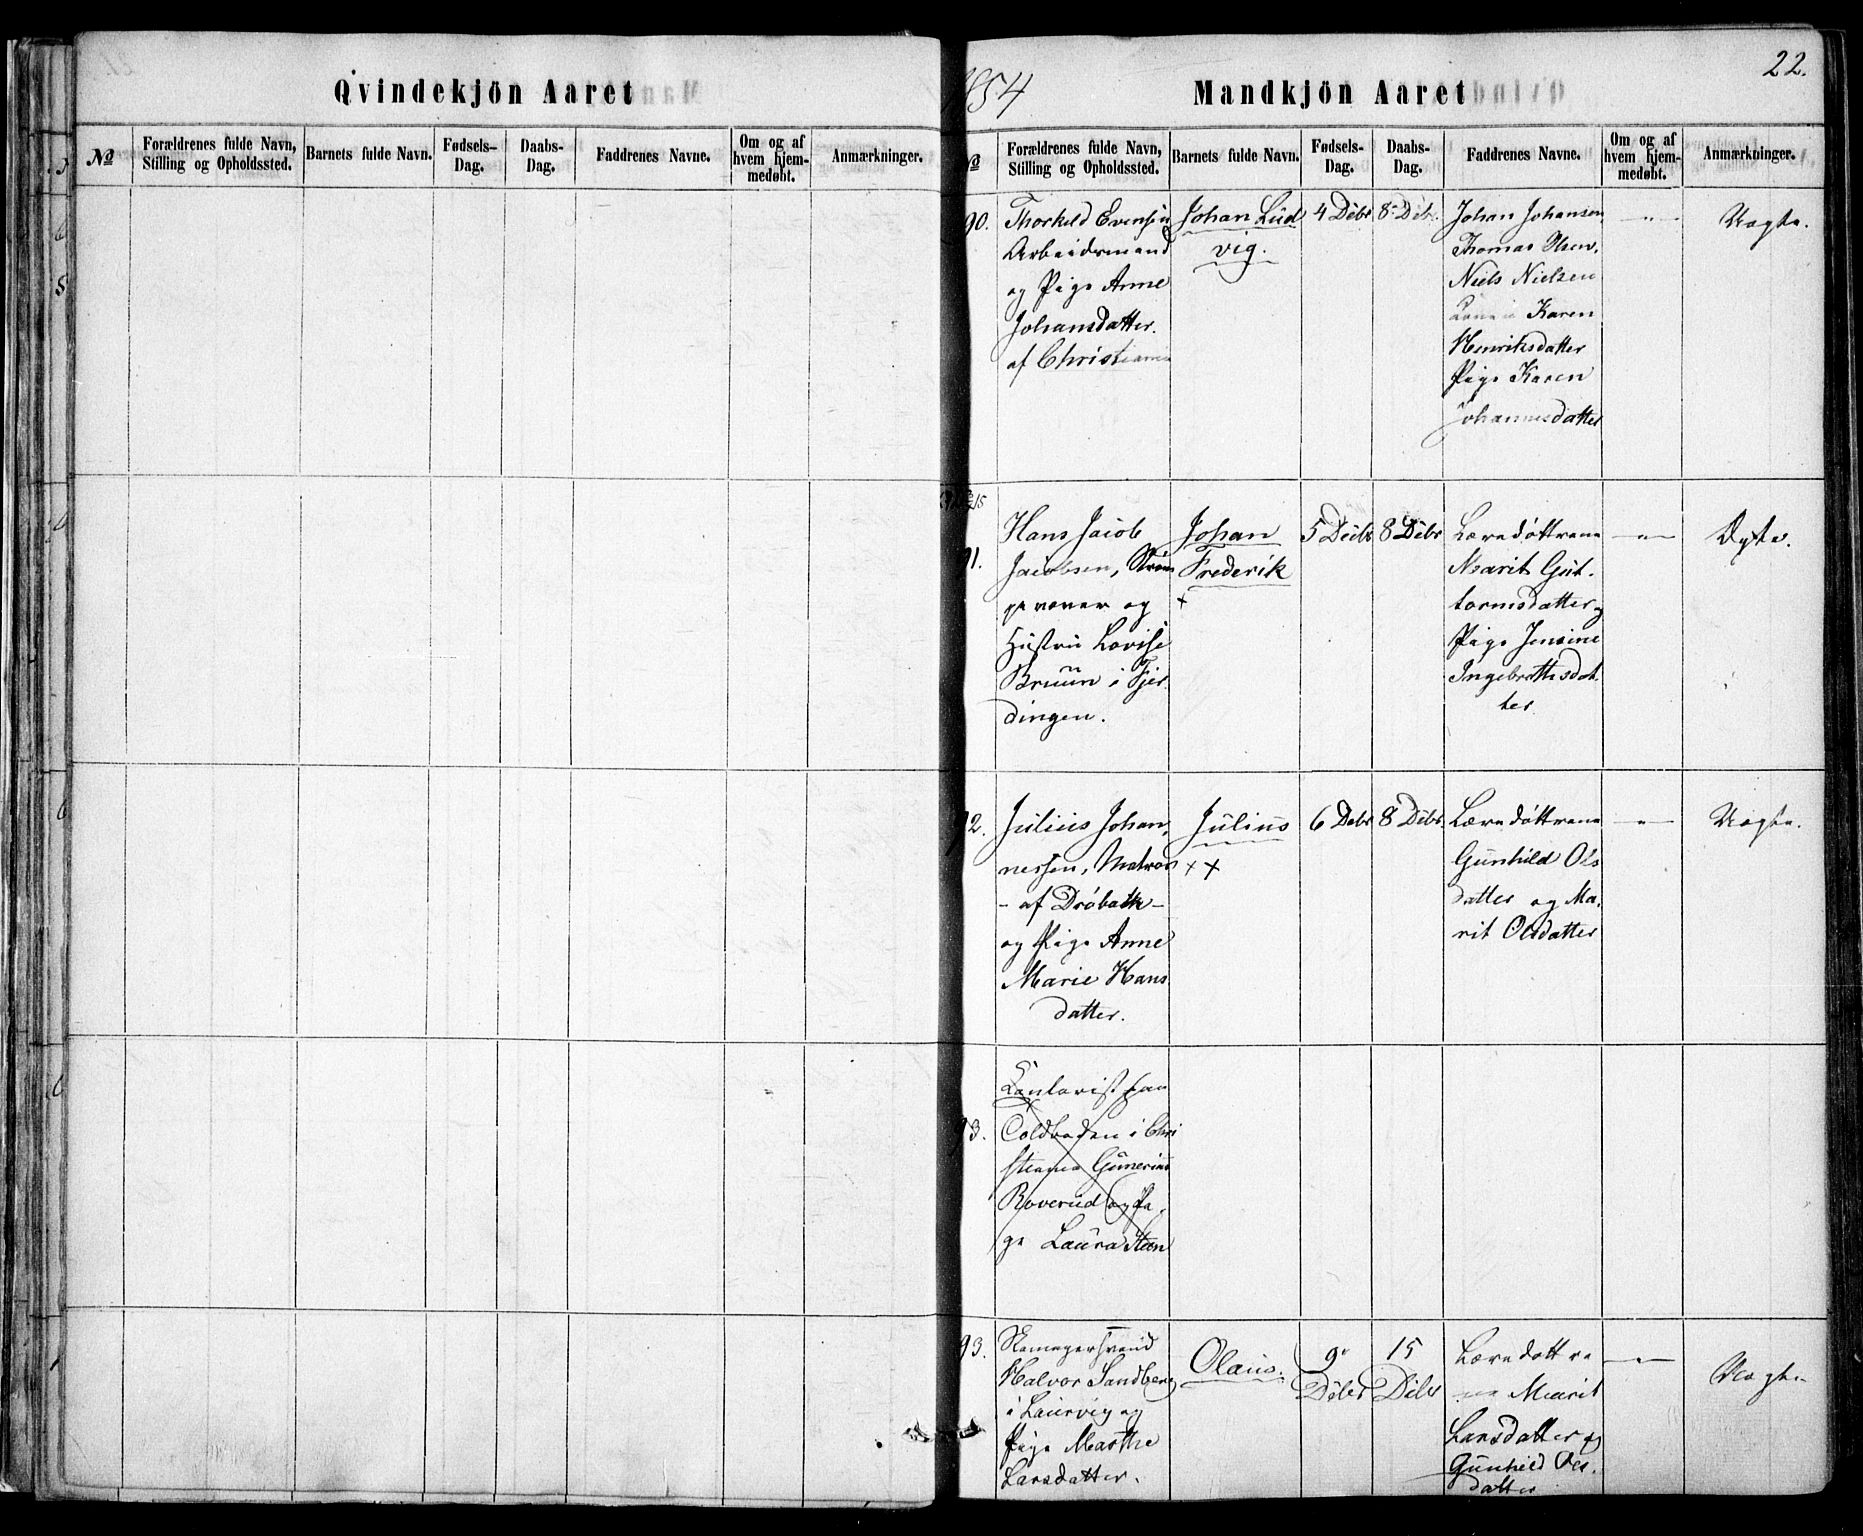 22.
Qvindekjön Aaret
1854
Mandkjön Aaret
No
Forældrenes fulde Navn, Stilling og Opholdssted.
Barnets fulde Navn.
Fødsels-Dag.
Daabs-Dag.
Faddrenes Navne.
Om og af hvem hjem-medøbt.
Anmærkninger.
No
Forældrenes fulde Navn, Stilling og Opholdssted.
Barnets fulde Navn.
Fødsels-Dag.
Daabs-Dag.
Faddrenes Navne.
Om og af hvem hjem-medøbt.
Anmærkninger.
90.
Thorkeld Evensen
Arbeidsmand
og Pige Anne
Johansdatter
af Christiania
Johan Lud
vig.
4 Debr
8 Debr.
Johan Johansen
Thomas Olsen,
Niels Nielsen
Karen
Henriksdatter
Pige Karen
Johannesdatter
— " —
Uægte.
91.
Hans Jacob
Jacobsen,
og
Hustru Lovise
Bruun i Fjer
dingen.
Johan
Frederik
+
5 Decbr
8 Decbr
Læredøttrene
Marit Gut-
tormsdatter og
Pige Jensine
Ingebretsdat-
ter
— " —
Ægte.
92.
Julius Johan-
nessen, Matros
- af Drøbak -
og Pige Anne
Marie Hans
datter.
Julius
++
6 Debr
8 Debr
Læredøttrene
Gunhild Ols
datter og Ma-
rit Olsdatter
— " —
Uægte.
93.
Contorist paa
Toldboden i Chri
stiania Gunerius
Roverud og Pi-
ge Laura Steen
93.
Rebslagersvend
Halvor Sandberg
i Laurvig og
Pige Marthe
Larsdatter.
Olaus.
9
Debr
15
Debr
Læredøttre
ne Marit
Larsdatter og
Gunhild Ols-
datter
— " —
Uægte